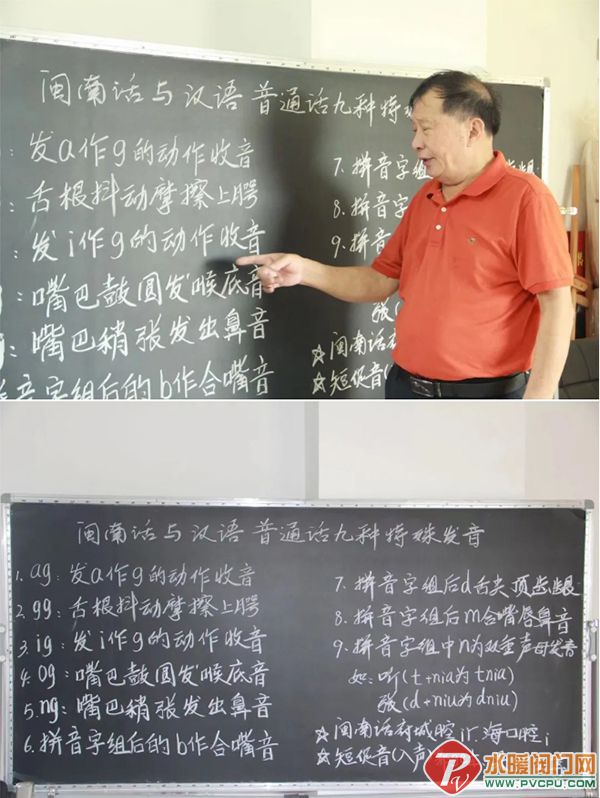 闽南话与汉语普通话九种特
发a作g的动作收音
舌根抖动摩擦上腭
发i作g的动作收音
嘴巴鼓圆发喉底音
嘴巴稍张发出鼻音
音字组后的b作合嘴音
7. 拼音字组
8. 拼音字
9. 拼音
张(
☆闽南话
☆短促音(
闽南话与汉语普通话九种特殊发音
1. ag: 发a作g的动作收音
2. gg: 舌根抖动摩擦上腭
3. ig: 发i作g的动作收音
4. og: 嘴巴鼓圆发喉底音
5. ng: 嘴巴稍张发出鼻音
6. 拼音字组后的b作合嘴音
7. 拼音字组后d舌尖顶齿龈
8. 拼音字组后m合嘴唇鼻音
9. 拼音字组中n为双重声母发音
如: 听(t+nia为tnia)
张(d+niu为dniu)
☆闽南话府城腔ir海口腔i
☆短促音(入声)
水暖阀门网
WWW.PVCPU.COM